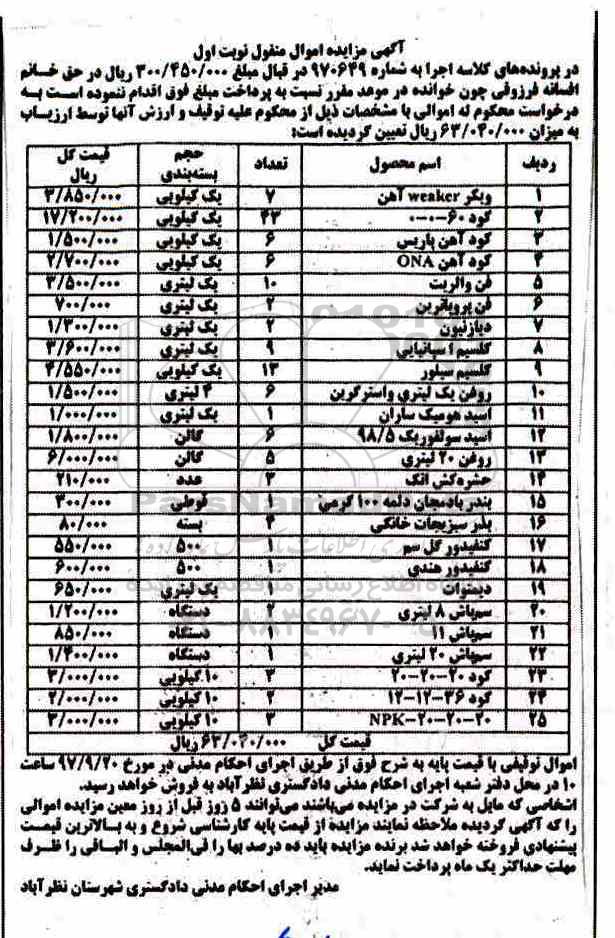 آگهی مزایده اموال منقول نوبت اول
در پرونده‌های کلاسه اجرا به شماره ۹۷۰۶۴۹ در قبال مبلغ ۳۰۰/۴۵۰/۰۰۰ ریال در حق خانم
افسانه فرزوقی چون خوانده در موعد مقرر نسبت به پرداخت مبلغ فوق اقدام ننموده است به
درخواست محکوم له اموالی با مشخصات ذیل از محکوم علیه توقیف و ارزش آنها توسط ارزیاب
به میزان ۶۳/۰۴۰/۰۰۰ ریال تعیین گردیده است:
ردیف اسم محصول تعداد حجم بسته‌بندی قیمت کل ریال
۱ ویکر weaker آهن ۷ یک کیلویی ۳/۸۵۰/۰۰۰
۲ کود ۶۰-۰-۰ ۴۳ یک کیلویی ۱۷/۲۰۰/۰۰۰
۳ کود آهن پاریس ۶ یک کیلویی ۱/۵۰۰/۰۰۰
۴ کود آهن ONA ۶ یک کیلویی ۲/۷۰۰/۰۰۰
۵ فن والریت ۱۰ یک لیتری ۳/۵۰۰/۰۰۰
۶ فن پروپاترین ۲ یک لیتری ۷۰۰/۰۰۰
۷ دیازنیون ۲ یک لیتری ۱/۳۰۰/۰۰۰
۸ کلسیم اسپانیایی ۹ یک لیتری ۳/۶۰۰/۰۰۰
۹ کلسیم سیلور ۱۳ یک کیلویی ۴/۵۵۰/۰۰۰
۱۰ روغن یک لیتری واسترگرین ۶ ۴ لیتری ۱/۵۰۰/۰۰۰
۱۱ اسید هومیک ساران ۱ یک لیتری ۱/۰۰۰/۰۰۰
۱۲ اسید سولفوریک ۹۸/۵ ۶ گالن ۱/۸۰۰/۰۰۰
۱۳ روغن ۲۰ لیتری ۵ گالن ۶/۰۰۰/۰۰۰
۱۴ حشره‌کش اتک ۳ عدد ۲۱۰/۰۰۰
۱۵ بندر بادمجان دلمه ۱۰۰ گرمی ۱ قوطی ۳۰۰/۰۰۰
۱۶ بذر سبزیجات خانگی ۴ بسته ۸۰/۰۰۰
۱۷ کنفیدور گل سم ۱ ۵۰۰ ۵۵۰/۰۰۰
۱۸ کنفیدور هندی ۱ ۵۰۰ ۶۰۰/۰۰۰
۱۹ دیمتوات ۱ یک لیتری ۶۵۰/۰۰۰
۲۰ سم‌پاش ۸ لیتری ۲ دستگاه ۱/۲۰۰/۰۰۰
۲۱ سم‌پاش ۱۱ ۱ دستگاه ۸۵۰/۰۰۰
۲۲ سم‌پاش ۲۰ لیتری ۱ دستگاه ۱/۴۰۰/۰۰۰
۲۳ کود ۲۰-۲۰-۲۰ ۳ ۱۰ کیلویی ۳/۰۰۰/۰۰۰
۲۴ کود ۳۶-۱۲-۱۲ ۲ ۱۰ کیلویی ۲/۰۰۰/۰۰۰
۲۵ NPK-۲۰-۲۰-۲۰ ۳ ۱۰ کیلویی ۳/۰۰۰/۰۰۰
قیمت کل ۶۳/۰۴۰/۰۰۰ ریال
اموال توقیفی با قیمت پایه به شرح فوق از طریق اجرای احکام مدنی در مورخ ۹۷/۹/۲۰ ساعت
۱۰ در محل دفتر شعبه اجرای احکام مدنی دادگستری نظرآباد به فروش خواهد رسید.
اشخاصی که مایل به شرکت در مزایده می‌باشند می‌توانند ۵ روز قبل از روز معین مزایده اموالی
را که آگهی گردیده ملاحظه نمایند مزایده از قیمت پایه کارشناسی شروع و به بالاترین قیمت
پیشنهادی فروخته خواهد شد برنده مزایده باید ده درصد بها را فی‌المجلس و الباقی را ظرف
مهلت حداکثر یک ماه پرداخت نماید.
مدیر اجرای احکام مدنی دادگستری شهرستان نظرآباد